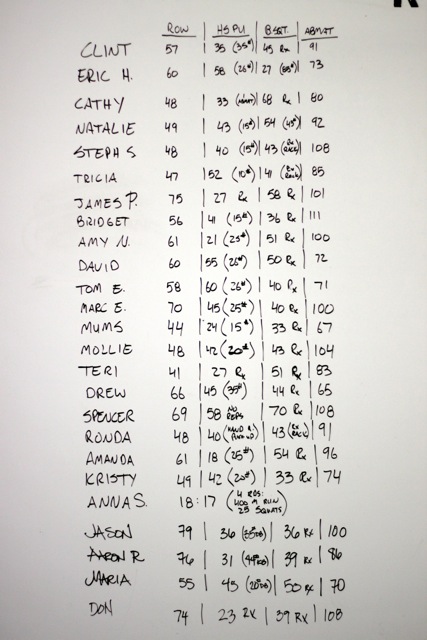 ROW HSPU BSQT. ABMAT
CLINT 57 | 35 (35#) | 45 Rx | 91
ERIC H. 60 | 58 (26#) | 27 | 73
CATHY 48 | 33 (ABMAT) | 68 Rx | 80
NATALIE 49 | 43 (15#) | 54 (45#) | 92
STEPH S 48 | 40 (15#) | 43 | 108
TRICIA 47 | 52 (10#) | 41 | 85
JAMES P. 75 | 27 Rx | 58 Rx | 101
BRIDGET 56 | 41 (15#) | 36 Rx | 111
AMY N. 61 | 21 (25#) | 51 Rx | 100
DAVID 60 | 55 (26#) | 50 Rx | 72
TOM E. 58 | 60 (26#) | 40 Rx | 71
MARC E. 70 | 45 (25#) | 40 Rx | 100
MUMS 44 | 24 (15#) | 33 Rx | 67
MOLLIE 48 | 42 (20#) | 43 Rx | 104
TERI 41 | 27 Rx | 51 Rx | 83
DREW 66 | 45 (35#) | 44 Rx | 65
SPENCER 69 | 58 NO REPS | 70 Rx | 108
RONDA 48 | 40 | 43 | 91
AMANDA 61 | 18 (25#) | 54 Rx | 96
KRISTY 49 | 42 (20#) | 33 Rx | 74
ANNA S. 18:17 (4 RDS: 400 M RUN 25 SQUATS)
JASON 79 | 36 | 36 Rx | 100
AARON R 76 | 31 | 39 Rx | 86
MARIA 55 | 45 | 50 Rx | 70
DON 74 | 23 RX | 39 RX | 108